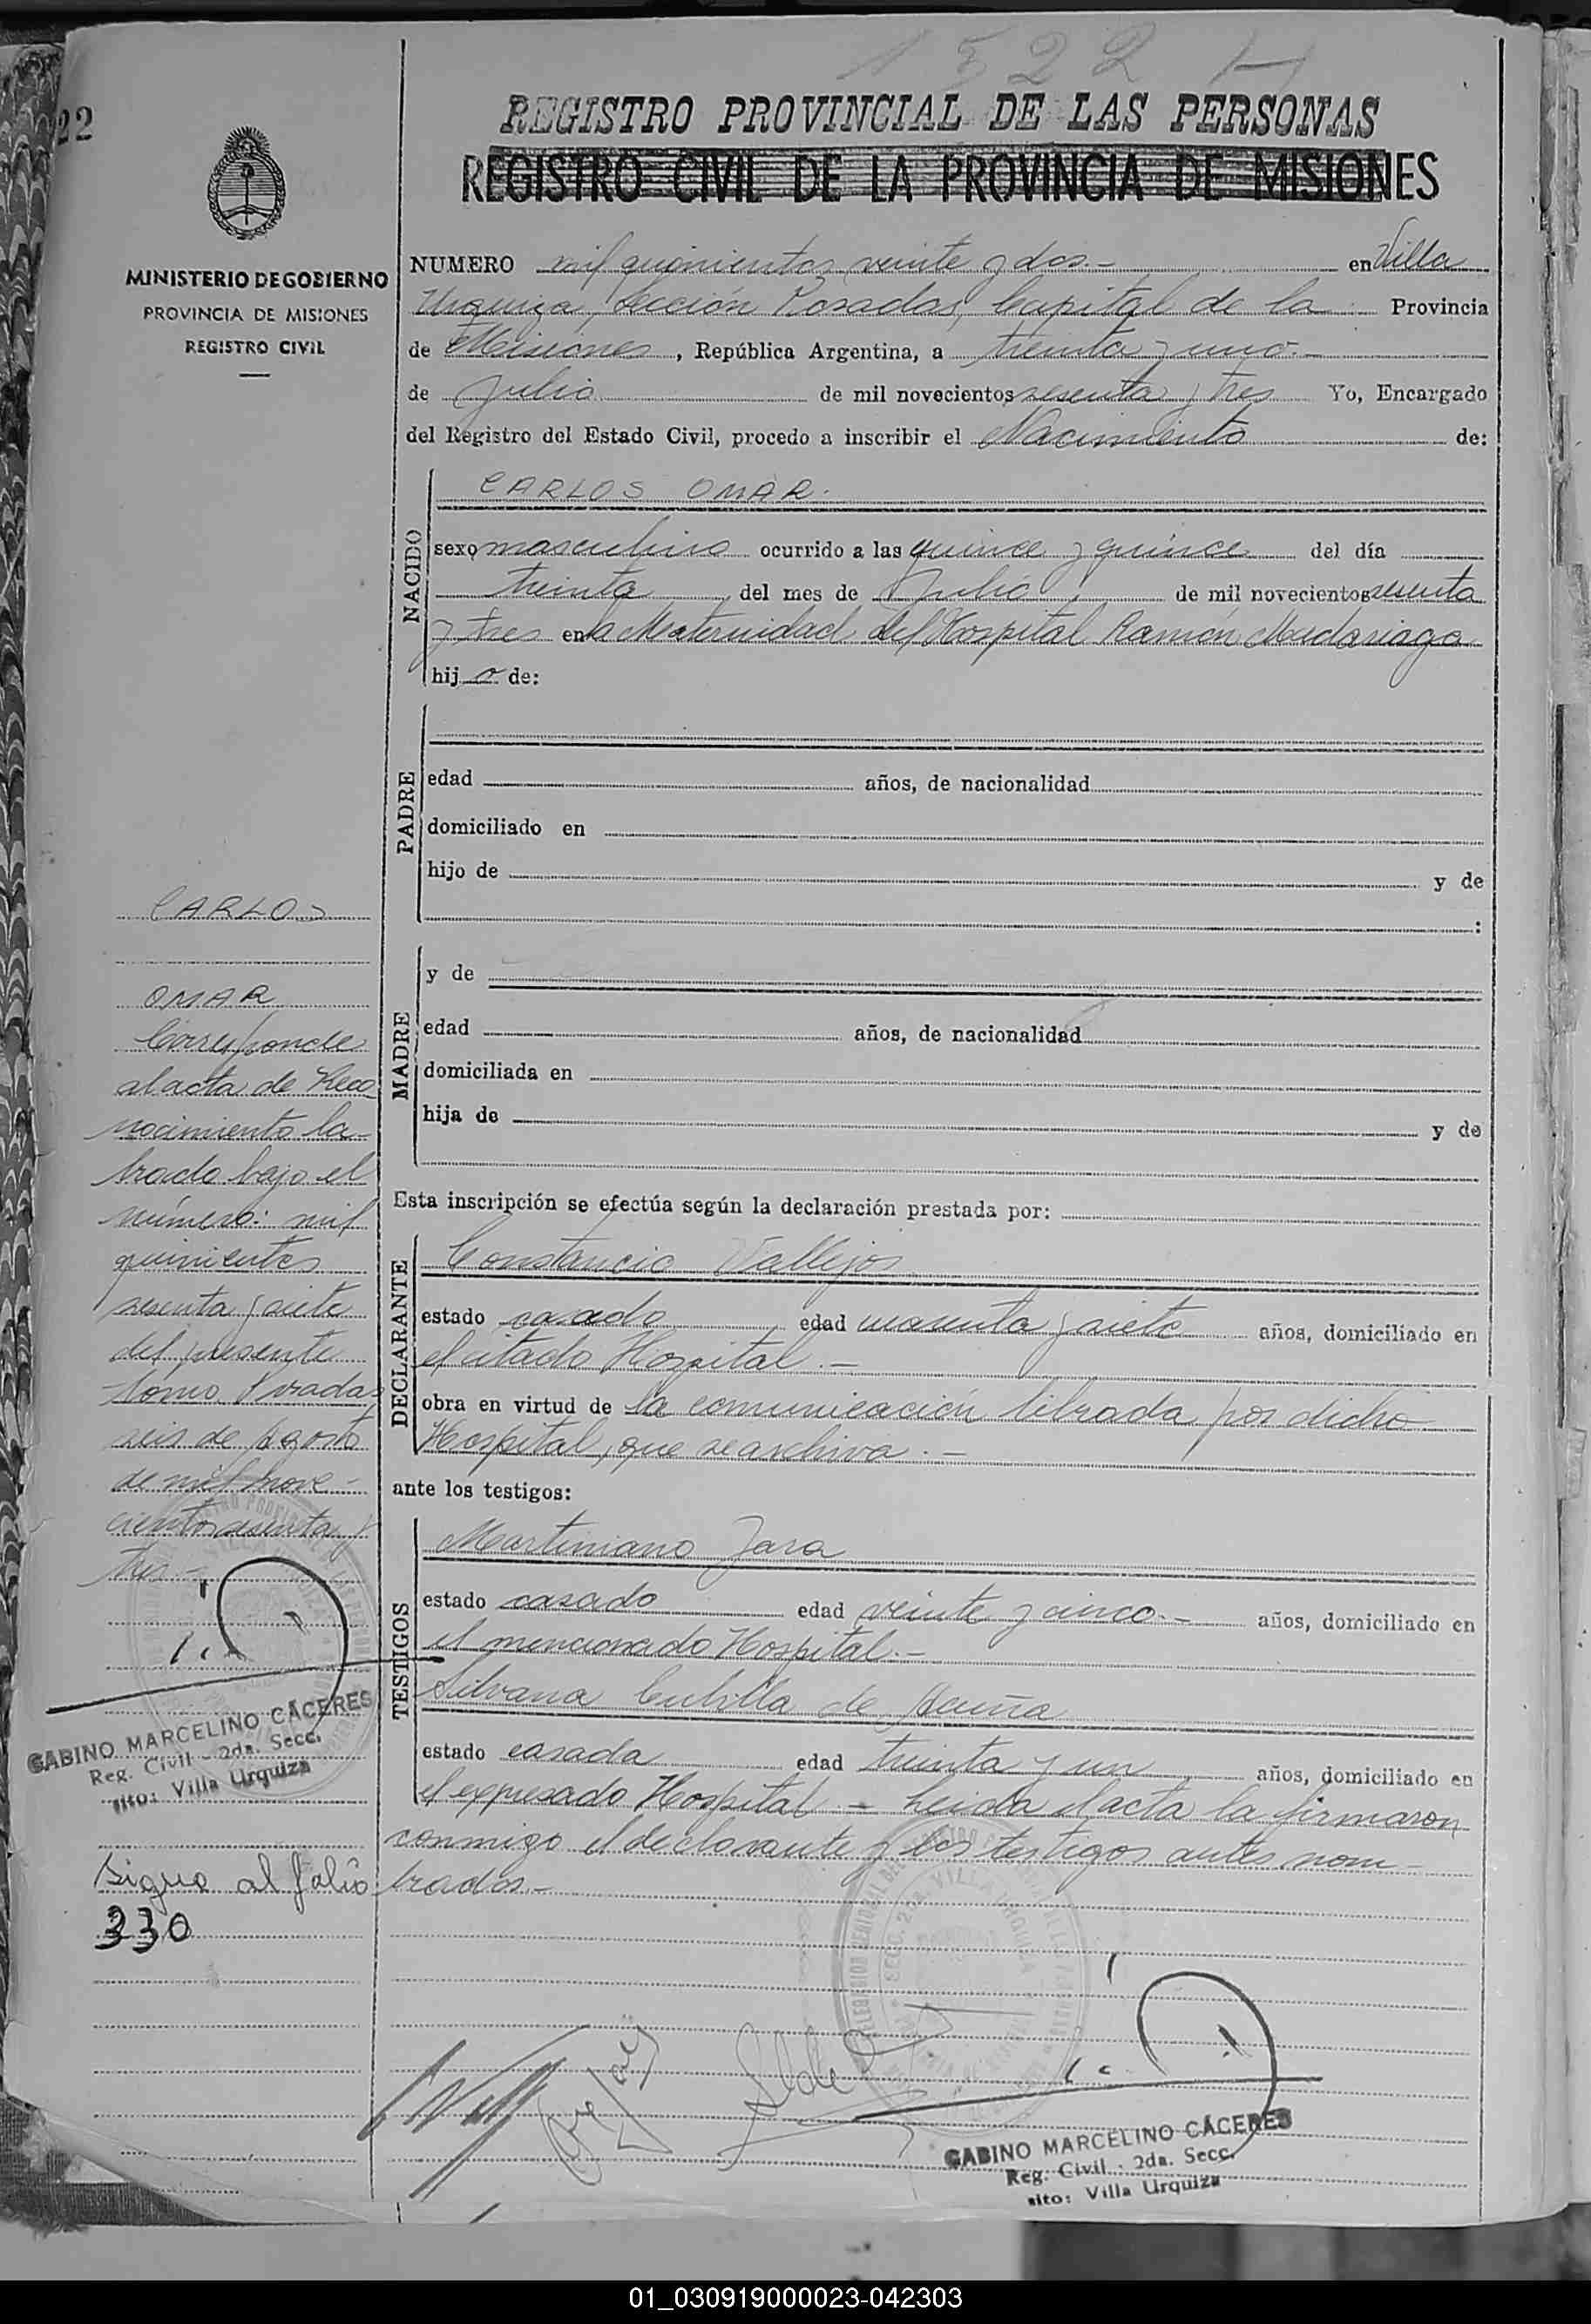 1522
22
REGISTRO PROVINCIAL DE LAS PERSONAS
REGISTRO CIVIL DE LA PROVINCIA DE MISIONES
MINISTERIO DE GOBIERNO
PROVINCIA DE MISIONES
REGISTRO CIVIL
NUMERO mil quinientos veinte y dos.- en Villa
Urquiza, Sección Posadas, Capital de la Provincia
de Misiones, República Argentina, a treinta y uno.-
de Julio de mil novecientos sesenta y tres Yo, Encargado
del Registro del Estado Civil, procedo a inscribir el Nacimiento de:
NACIDO
CARLOS OMAR.
sexo masculino ocurrido a las quince y quince del día
treinta del mes de Julio de mil novecientos sesenta
y tres en la Maternidad del Hospital Ramón Madariaga
hijo de:
PADRE
edad años, de nacionalidad
domiciliado en
hijo de y de
:
MADRE
y de
edad años, de nacionalidad
domiciliada en
hija de y de
Esta inscripción se efectúa según la declaración prestada por:
DECLARANTE
Constancio Vallejos
estado casado edad cuarenta y siete años, domiciliado en
el citado Hospital.-
obra en virtud de la comunicación librada por dicho
Hospital, que se archiva.-
ante los testigos:
TESTIGOS
Martiniano Jara
estado casado edad veinte y cinco.- años, domiciliado en
el mencionado Hospital.-
Silvana Cubilla de Acuña
estado casada edad treinta y un años, domiciliado en
el expresado Hospital.- Leida el acta la firmaron
conmigo el declarante y los testigos antes nom-
brados.-
CARLOS
OMAR
Corresponde
al acta de Reco
nocimiento la-
brada bajo el
número: mil
quinientos
sesenta y siete
del presente
tomo. Posadas,
seis de Agosto
de mil nove-
cientos sesenta y
tres.-
GABINO MARCELINO CÁCERES
Reg. Civil - 2da. Secc.
sito: Villa Urquiza
Sigue al folio
330
GABINO MARCELINO CÁCERES
Reg. Civil - 2da. Secc.
sito: Villa Urquiza
01_030919000023-042303